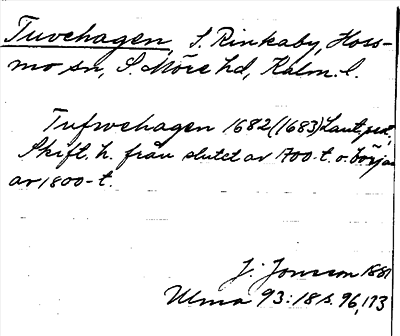 Tuvehagen, S. Rinkaby, Hoss-
mo sn, S. Möre hd, Kalm. l.
Tufwehagen 1682 (1683) Lant.
Skift. h. från slutet av 1700-t. o. början
av 1800-t.
J. Jonsson 1881
Ulma 93:18 s. 96, 173